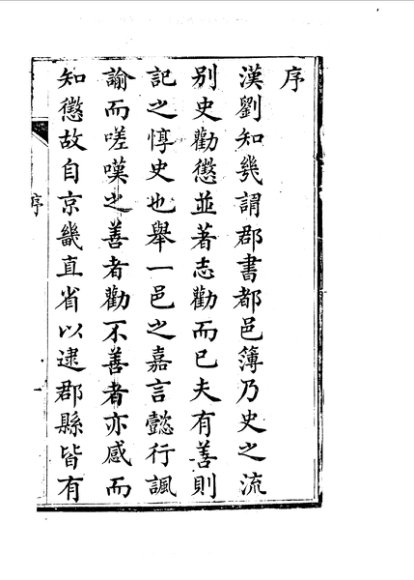 序
漢劉知幾謂郡書都邑簿乃史之流
别史勸懲並著志勸而已夫有善則
記之惇史也舉一邑之嘉言懿行諷
諭而嗟嘆之善者勸不善者亦感而
知懲故自京畿直省以逮郡縣皆有
序